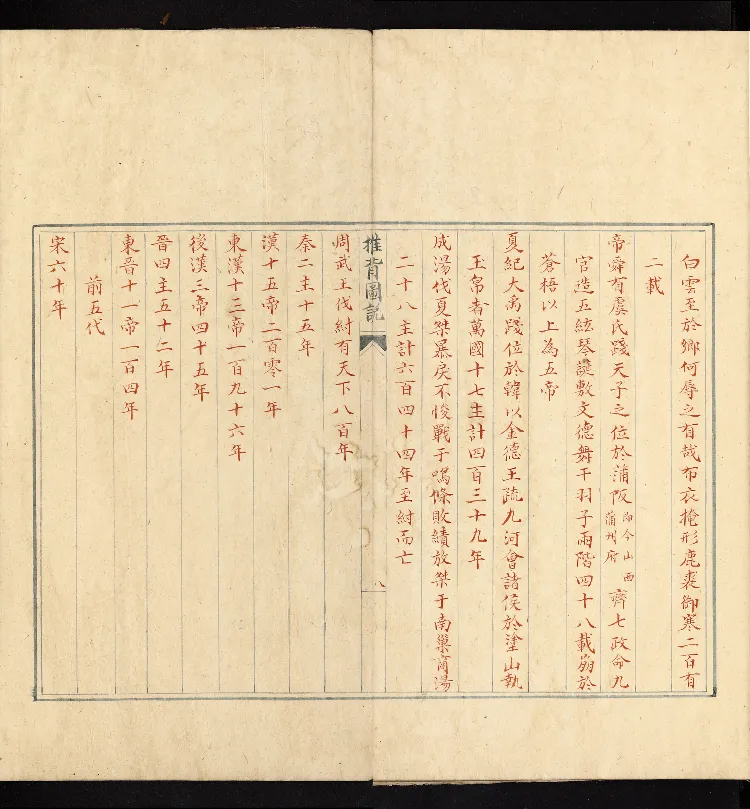 白雲至於鄉何辱之有哉布衣掩形鹿裘御寒二百有
二載
帝舜有虞氏踐天子之位於蒲阪即今山西蒲州府齊七政命九
官造五絃琴誕敷文德舞干羽于兩階四十八載崩於
蒼梧以上為五帝
夏紀大禹踐位於韓以金德王疏九河會諸侯於塗山執
玉帛者萬國十七主計四百三十九年
成湯伐夏桀暴戾不悛戰于鳴條敗績放桀于南巢商湯
二十八主計六百四十四年至紂而亡
推背圖説
八
周武王伐紂有天下八百年
秦二主十五年
漢十五帝二百零一年
東漢十三帝一百九十六年
後漢三帝四十五年
晉四主五十二年
東晉十一帝一百四年
前五代
宋六十年